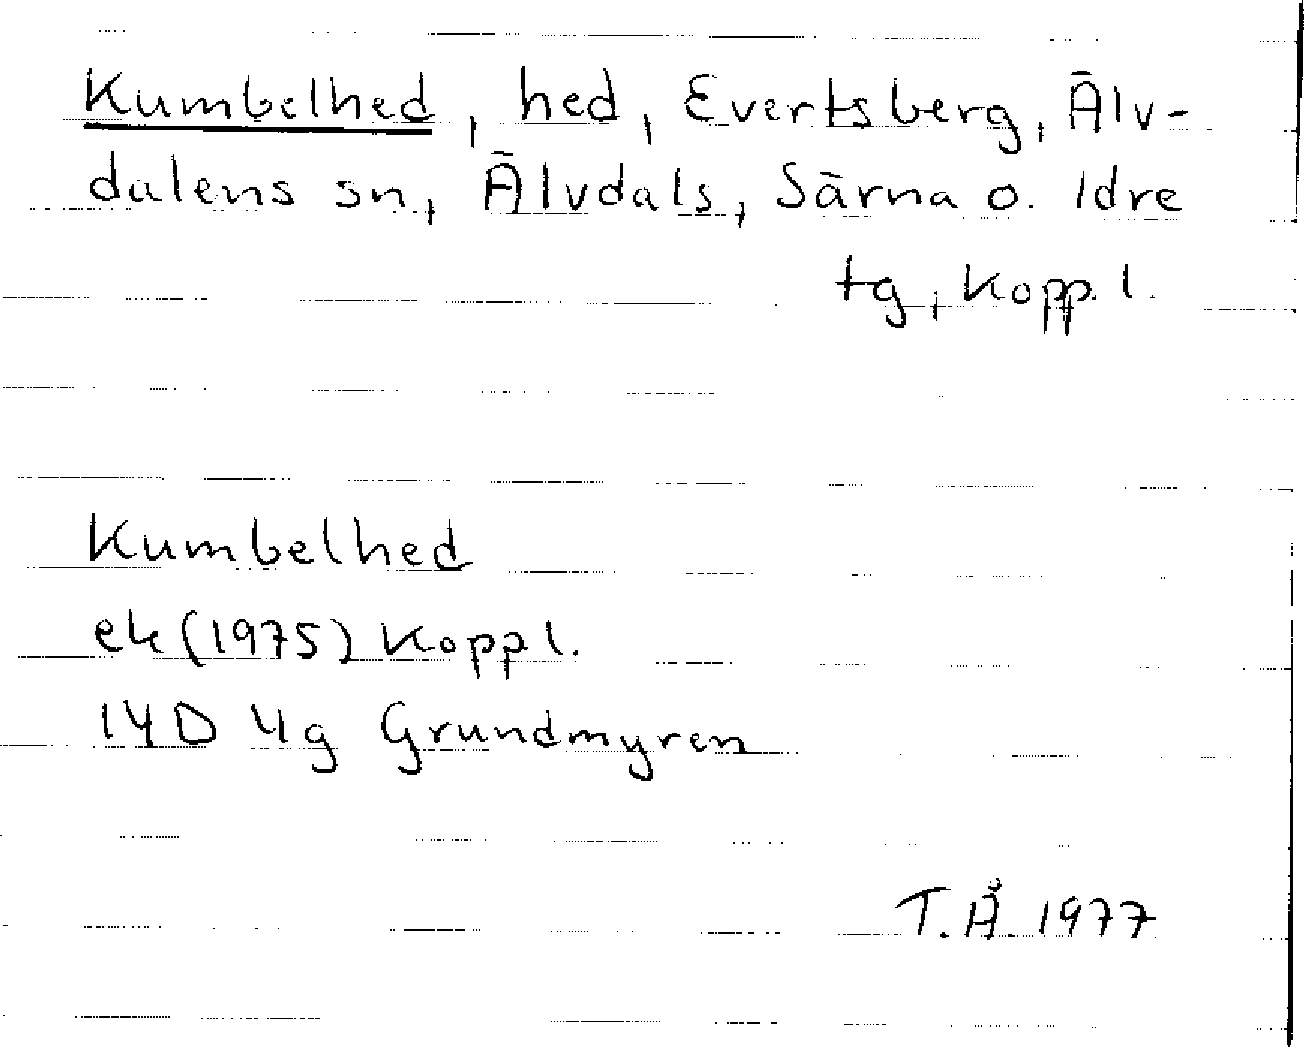 Kumbelhed, hed, Evertsberg, Älv-
dalens sn, Älvdals, Särna o. Idre
tg, Kopp. l.
Kumbelhed
ek (1975) Koppl.
14D 4g Grundmyren
T.Å. 1977